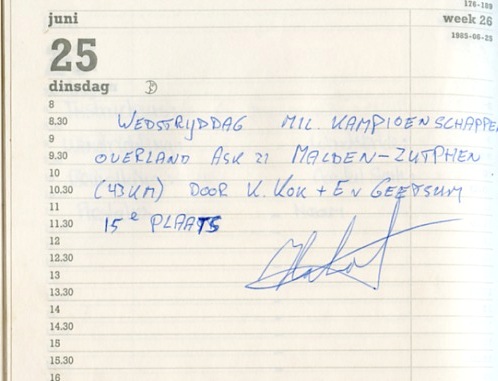 176-189
juni
week 26
25
1985-06-25
dinsdag
8
8.30 WEDSTRYDDAG MIL. KAMPIOENSCHAPPE
9
9.30 OVERLAND ASK 21 MALDEN-ZUTPHEN
10
10.30 (43KM) DOOR K. KOK + EV
11
11.30 15e PLAATS
12
12.30
13
13.30
14
14.30
15
15.30
16